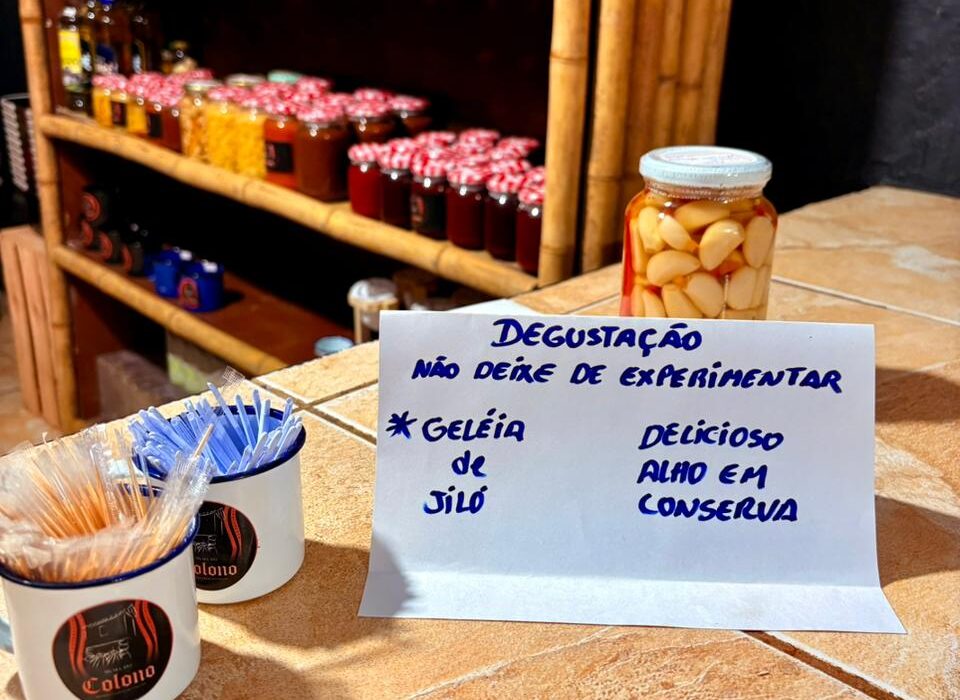 DEGUSTAÇÃO
NÃO DEIXE DE EXPERIMENTAR
* GELÉIA
de
JILÓ
DELICIOSO
ALHO EM
CONSERVA
Colono
Colono